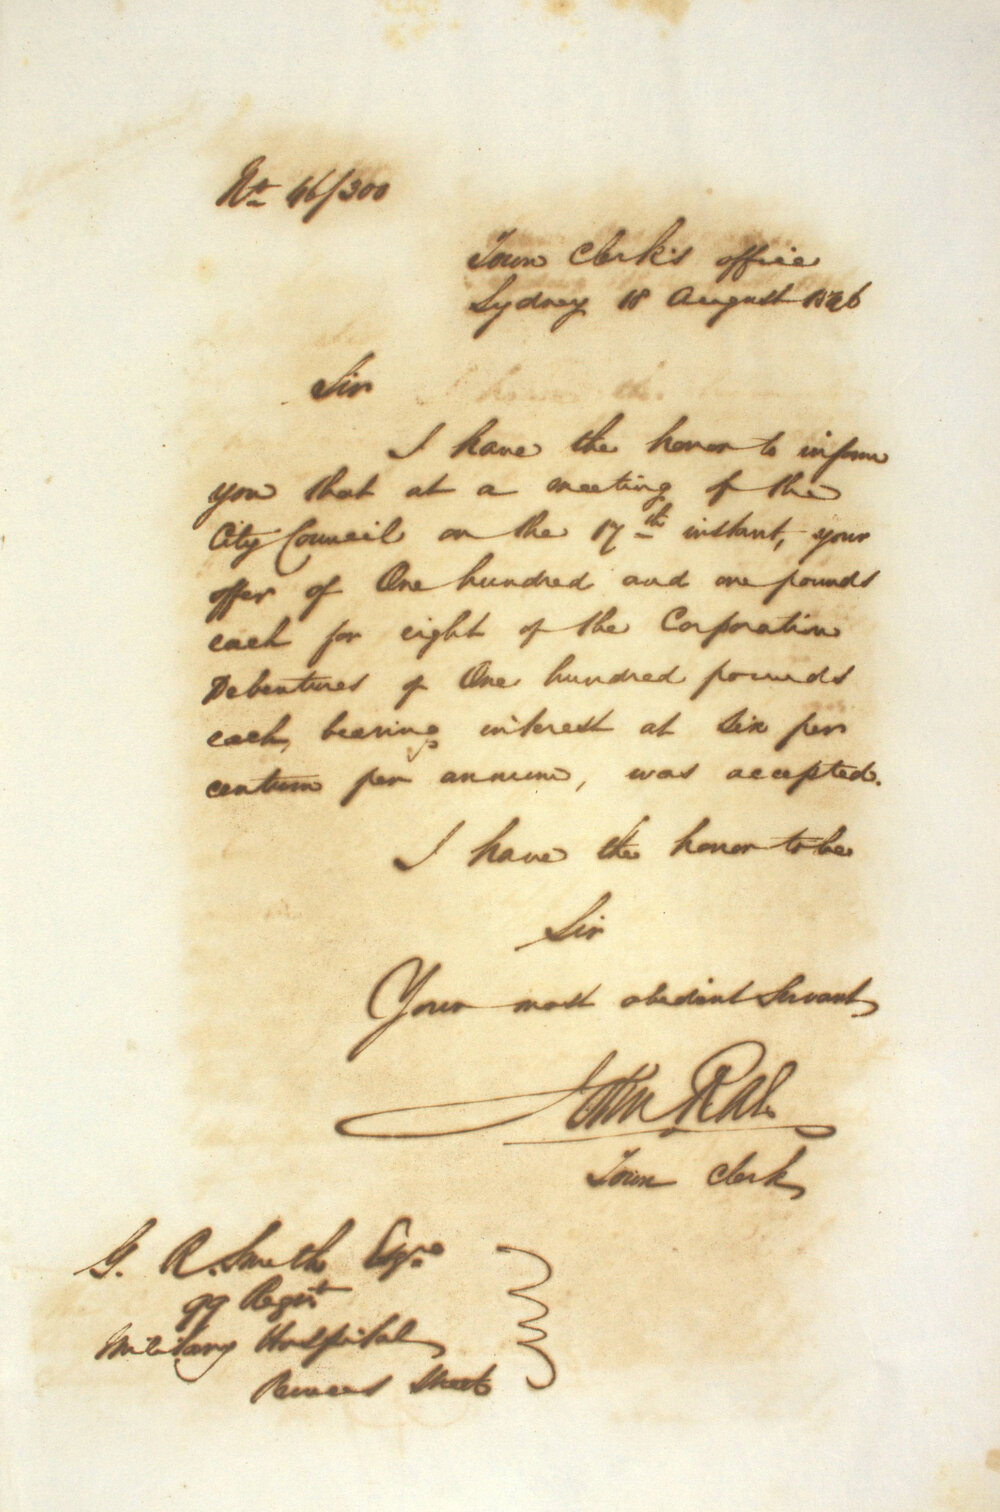 No 46/300
Town Clerk's office
Sydney 18 August 1846
Sir
I have the honor to inform
you that at a meeting of the
City Council on the 17th instant, your
offer of One hundred and one pounds
each for eight of the Corporation
Debentures of One hundred pounds
each, bearing interest at six per
centum per annum, was accepted.
I have the honor to be
Sir
Your most obedient Servant
John Rae
Town Clerk
G. R. Smith Esqre
99 Regist
Military Hospital
Princes Street